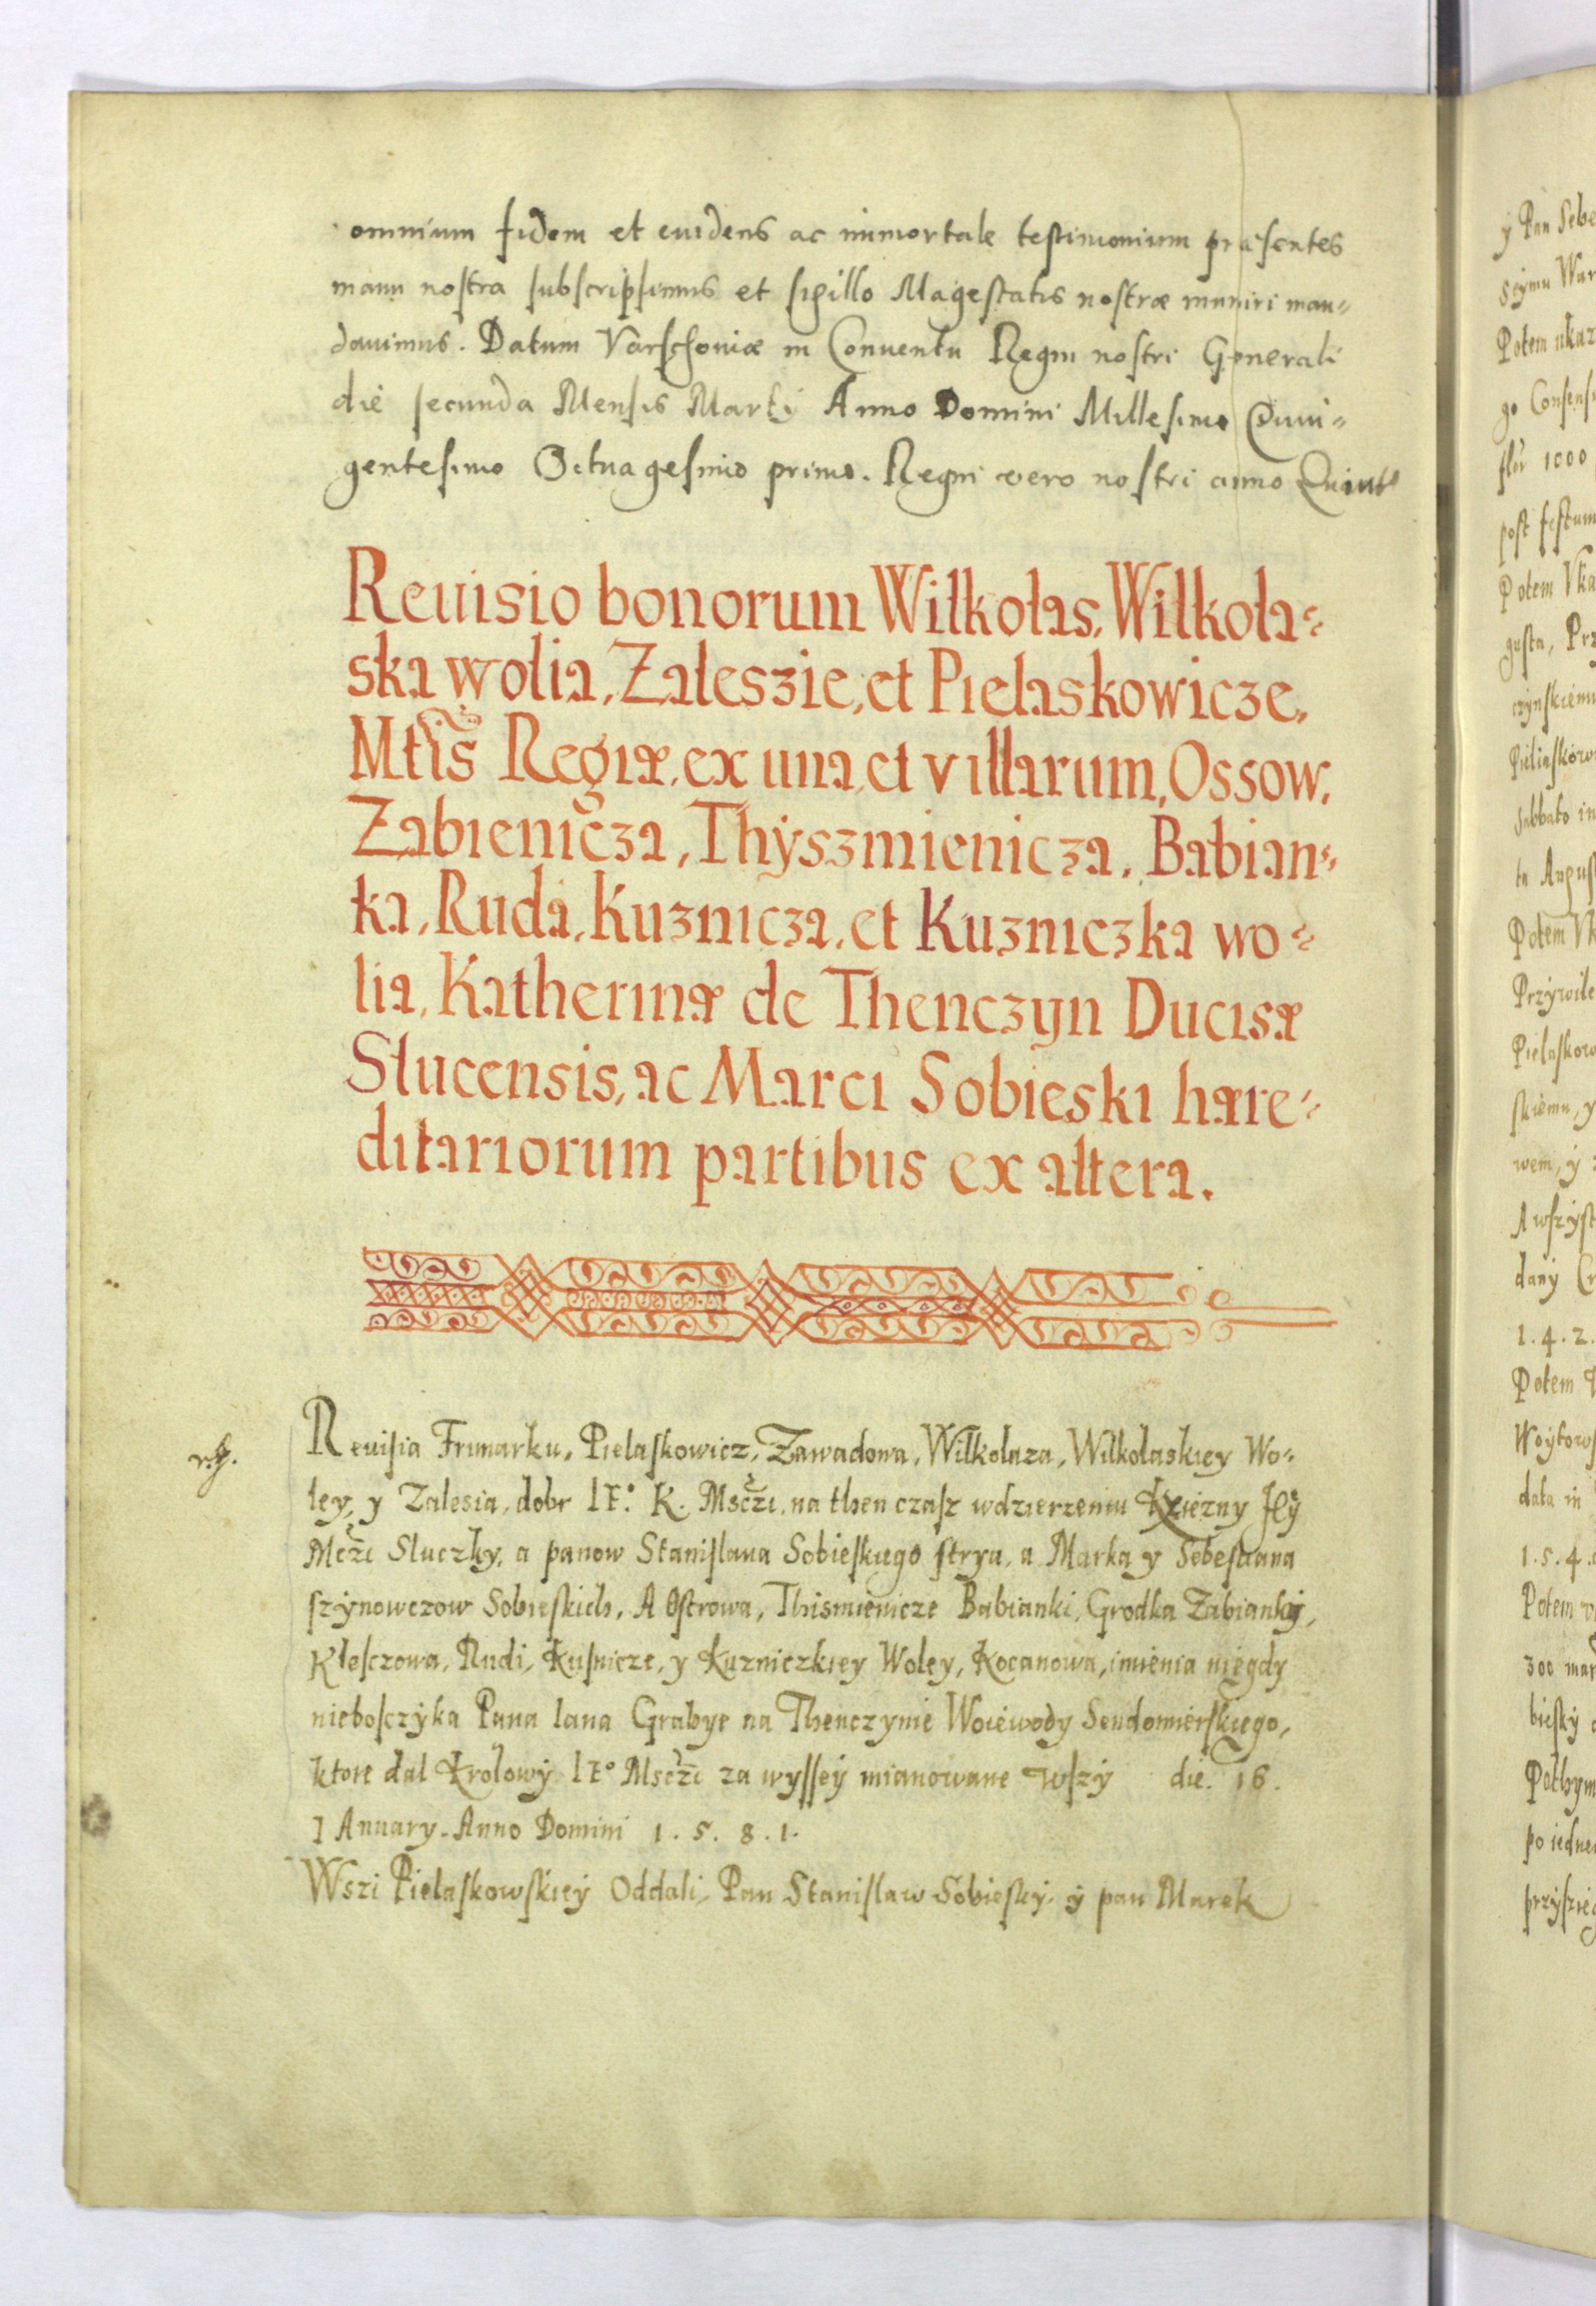 omnium fidem et euidens ac immortale testimonium præsentes
manu nostra subscripsimus et sigillo Magestatis nostræ muniri man=
dauimus. Datum Varschoviæ in Conuentu Regni nostri Generali
die secunda Mensis Martij Anno Domini Millesimo Quin=
gentesimo Octuagesimo primo. Regni vero nostri anno Quinto
Reuisio bonorum Wilkolas, Wilkola=
ska wolia, Zaleszie, et Pielaskowicze,
Mtis Regiæ, ex una, et villarum, Ossow,
Zabienicza, Thÿszmienicza, Babian=
ka, Ruda, Kuznicza, et Kuzniczka wo=
lia, Katherinæ de Thenczyn Ducisæ
Slucensis, ac Marci Sobieski hære=
ditariorum partibus ex altera.
Reuisia Frimarku, Pielaskowicz, Zawadowa, Wilkolaza, Wilkolaskiey Wo=
ley, y Zalesia, dobr IE° K. Msczi. na then czasz wdzierzeniu Kxiezny Jey
Mczi Sluczky, a panow Stanislawa Sobieskiego stryia, a Marka y Sebestiana
szÿnowczow Sobieskich, A Ostrowa, Thismienicze Babianki, Grodka Zabianky,
Klesczowa, Rudi, Kusnicze, y Kuzniczkiey Woley, Kocanowa, imienia niegdy
niebosczÿka Pana Iana Grabye na Thenczynie Woiewody Sendomierskiego,
ktore dal Krolowÿ IE° Msczi za wysseÿ mianowane wszÿ die. 16.
IAnuary. Anno Domini 1.5.8.1.
Wszi Pielaskowskieÿ Oddali, Pan Stanislaw Sobieskÿ. ÿ pan Marek
ÿ Pan Sebe
Potem ukaz
go Consens
flŕ 1000
post festum
Potem Vka
gusta, Prz
Sabbato in
Potem Vk
Przÿwile
Pielaskow
skiemu, y
wem, ÿ
A wszÿst
danÿ
1.4.2.
Potem
Woÿtows
data in
1.5.4.
Potem
300 mar
bieskÿ
Pothym
po iedne